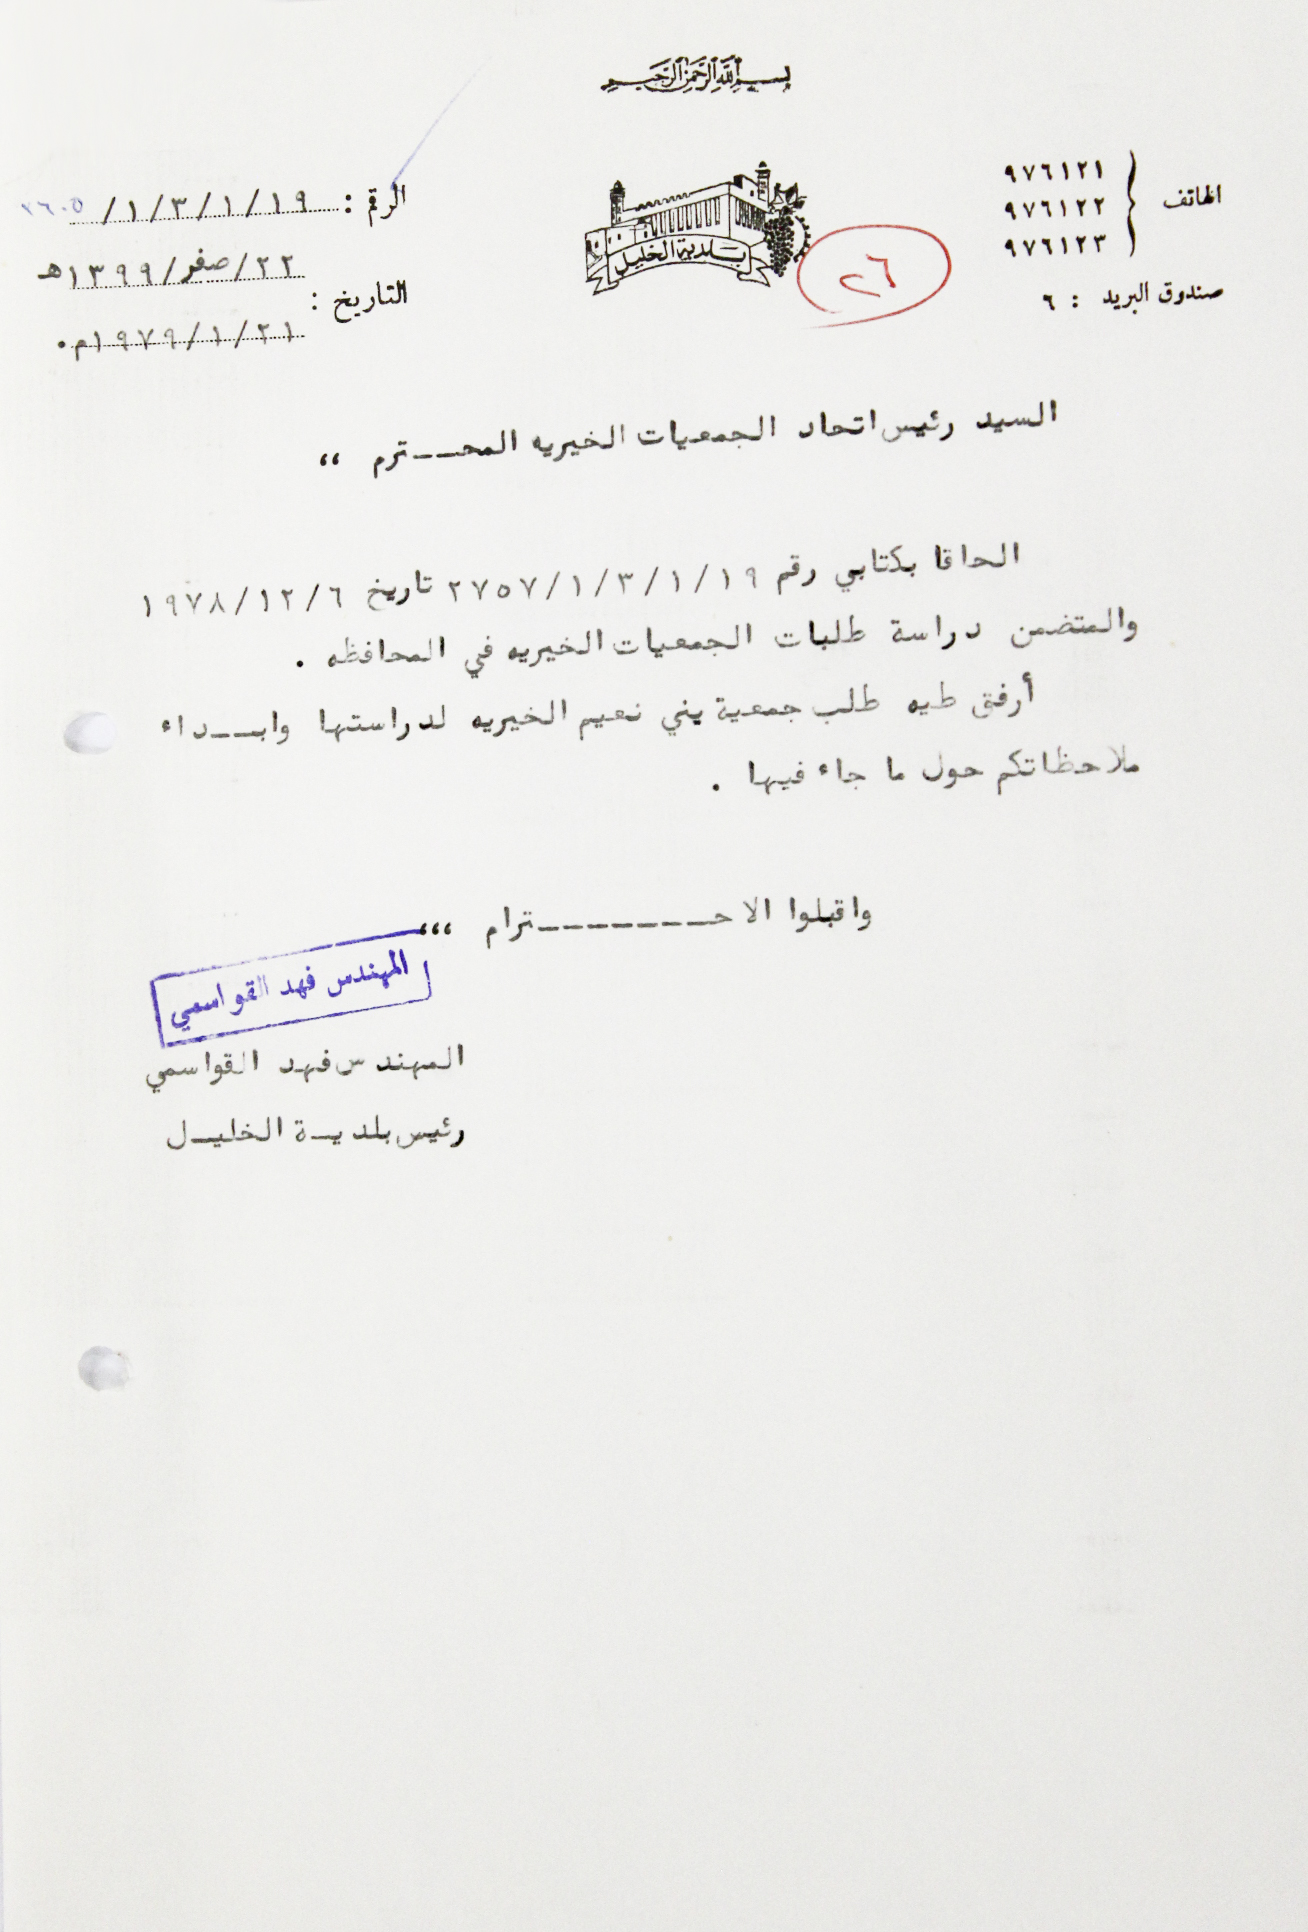 بسم الله الرحمن الرحيم
الهاتف
٩٧٦١٢١
٩٧٦١٢٢
٩٧٦١٢٣
صندوق البريد : ٦
بلدية الخليل
٢٦
الرقم : ١٩/١/٣/١/
التاريخ :
٢٢/صفر/١٣٩٩هـ
٢١/١/١٩٧٩م.
السيد رئيس اتحاد الجمعيات الخيريه المحـــترم ،،
الحاقا بكتابي رقم ١٩/١/٣/١/٢٧٥٧ تاريخ ١٩٧٨/١٢/٦
والمتضمن دراسة طلبات الجمعيات الخيريه في المحافظه .
أرفق طيه طلب جمعية بني نعيم الخيريه لدراستها وابـــداء
ملاحظاتكم حول ما جاء فيها .
واقبلوا الاحــــــــترام ،،،
المهندس فهد القواسمي
المهندس فهد القواسمي
رئيس بلديـة الخليـل